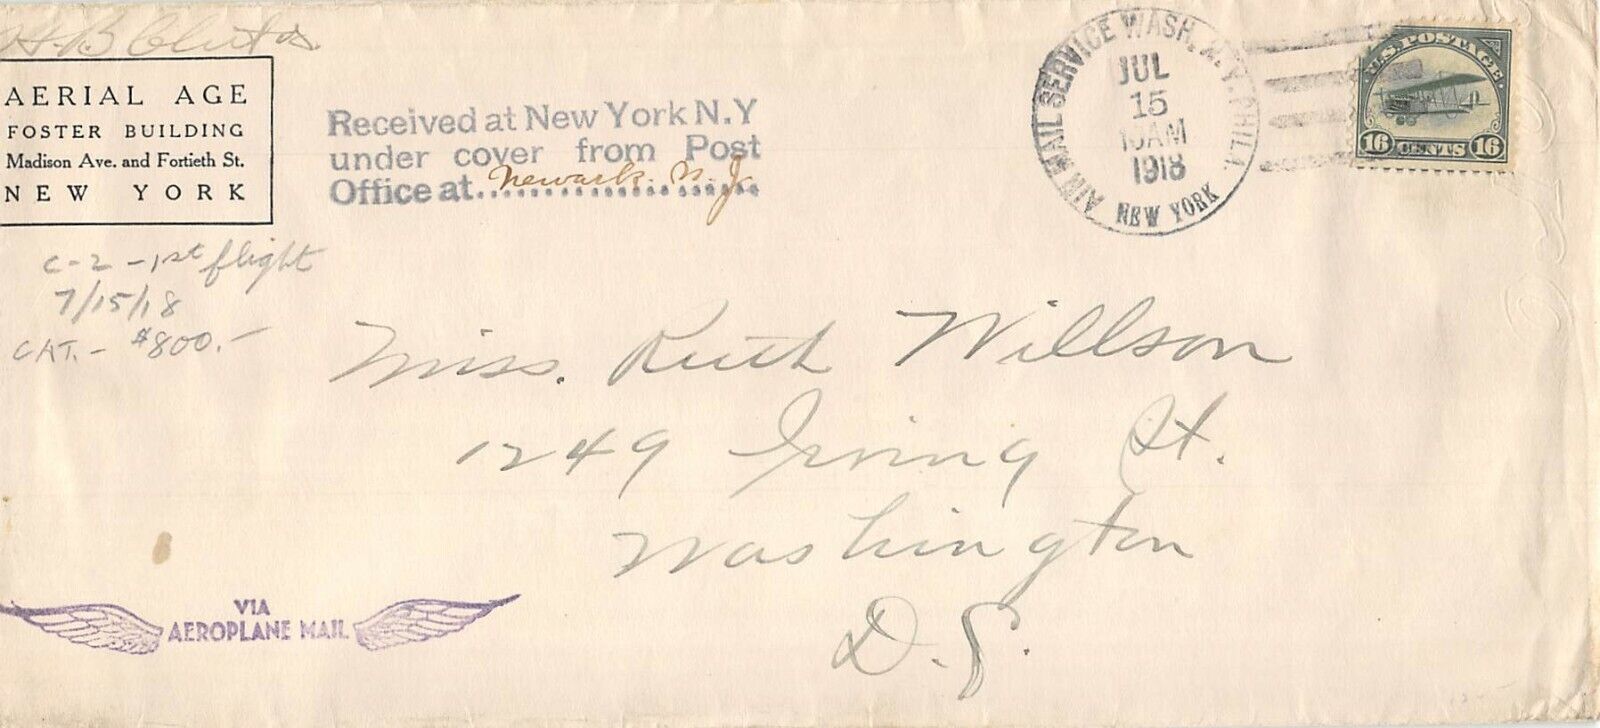 H. B.
AERIAL AGE
FOSTER BUILDING
Madison Ave. and Fortieth St.
NEW YORK
Received at New York N.Y
under cover from Post
Office at Newark. N. J.
AIR MAIL SERVICE WASH. N.Y. PHILA.
JUL
15
10AM
1918
NEW YORK
U.S. POSTAGE
16 CENTS 16
C-2 - 1st flight
7/15/18
CAT. - $800.-
Miss. Ruth Willson
1249 Irving St.
Washington
D. C.
VIA
AEROPLANE MAIL